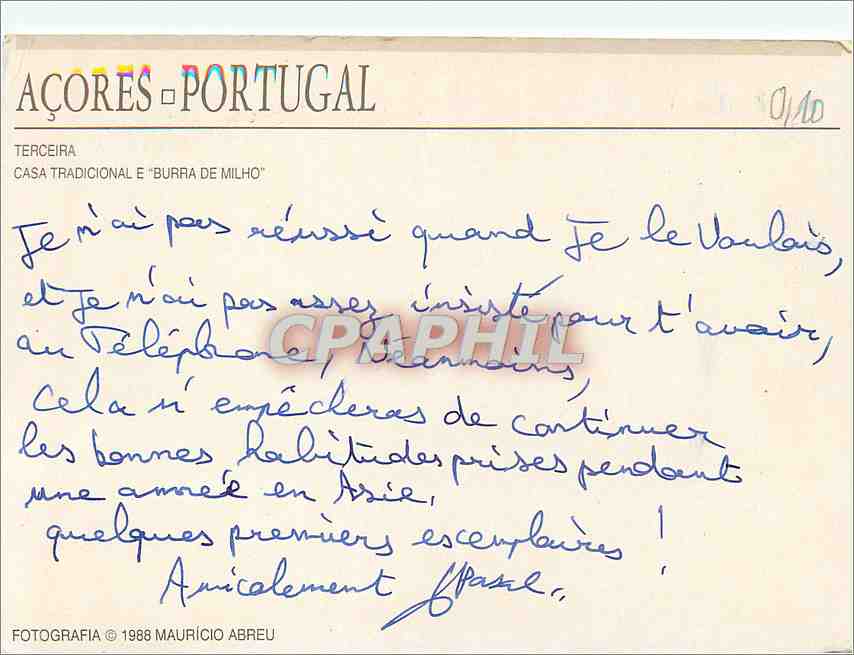 AÇORES □ PORTUGAL
0,10
TERCEIRA
CASA TRADICIONAL E "BURRA DE MILHO"
Je n'ai pas réussi quand Je le Voulais,
et Je n'ai pas assez insisté pour t'avoir,
au Téléphone, Néanmoins,
CPAPHIL
Cela n'empêcheras de continuer
les bonnes habitudes prises pendant
une année en Asie.
quelques premiers escemplaires !
Amicalement
FOTOGRAFIA © 1988 MAURÍCIO ABREU